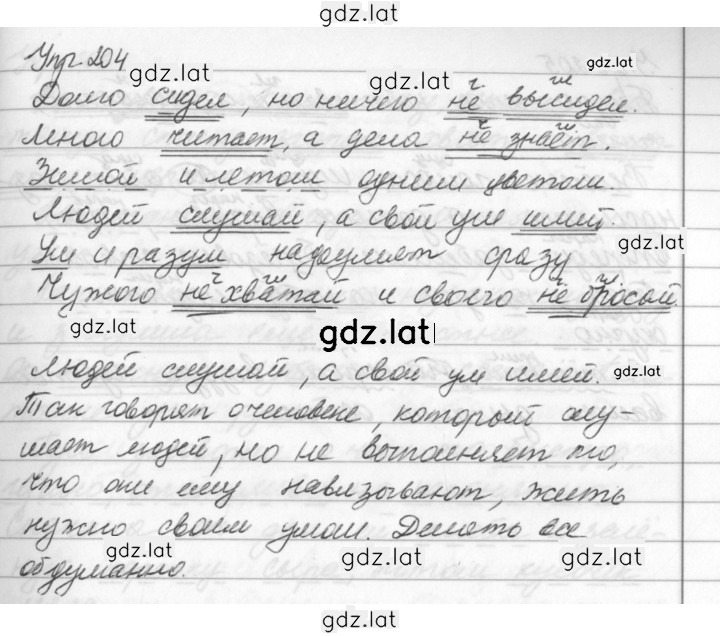 gdz.lat
Упр. 204
gdz.lat gdz.lat
Долго сидел, но ничего не высидел.
Много читает, а дела не знает.
Зимой и летом одним цветом.
Людей слушай, а свой ум имей.
gdz.lat
Ум и разум надоумят сразу
Чужого не хватай и своего не бросай.
gdz.lat
Людей слушай, а свой ум имей.
gdz.lat
Так говорят о человеке, который слу-
шает людей, но не выполняет то,
что они ему навязывают, жить
нужно своим умом. Делать все
gdz.lat gdz.lat gdz.lat
обдуманно.
gdz.lat